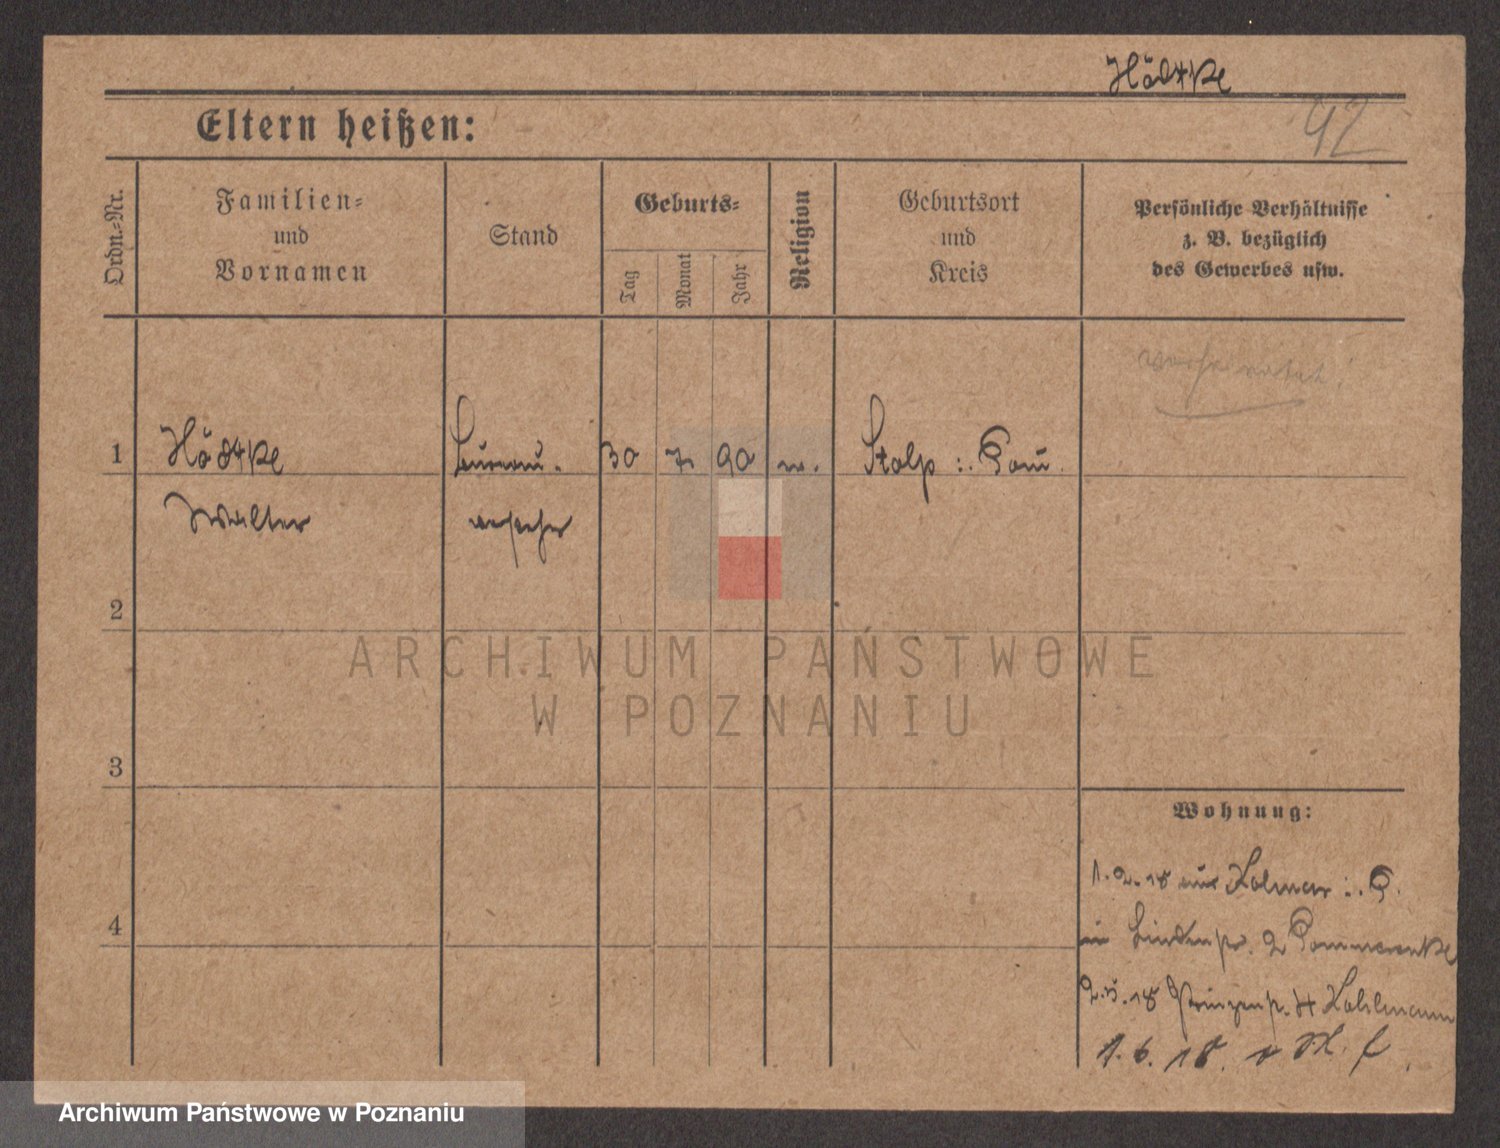 Hädtke
92
Eltern heißen:
Ordn.-Nr.
Familien-
und
Vornamen
Stand
Geburts-
Tag
Monat
Jahr
Religion
Geburtsort
und
Kreis
Persönliche Verhältnisse
z. B. bezüglich
des Gewerbes usw.
verheiratet!
1
Hädtke
Bureau-
30
7.
90
Stolp i. Pom
Walter
vorsteher
2
ARCHIWUM PAŃSTWOWE
W POZNANIU
3
Wohnung:
1.2.18 aus Kolmar i. P.
in Lindenstr. 2 Pommerenke
18 Prinzenstr. 4 Kohlmann
4
1.6.18.
Archiwum Państwowe w Poznaniu